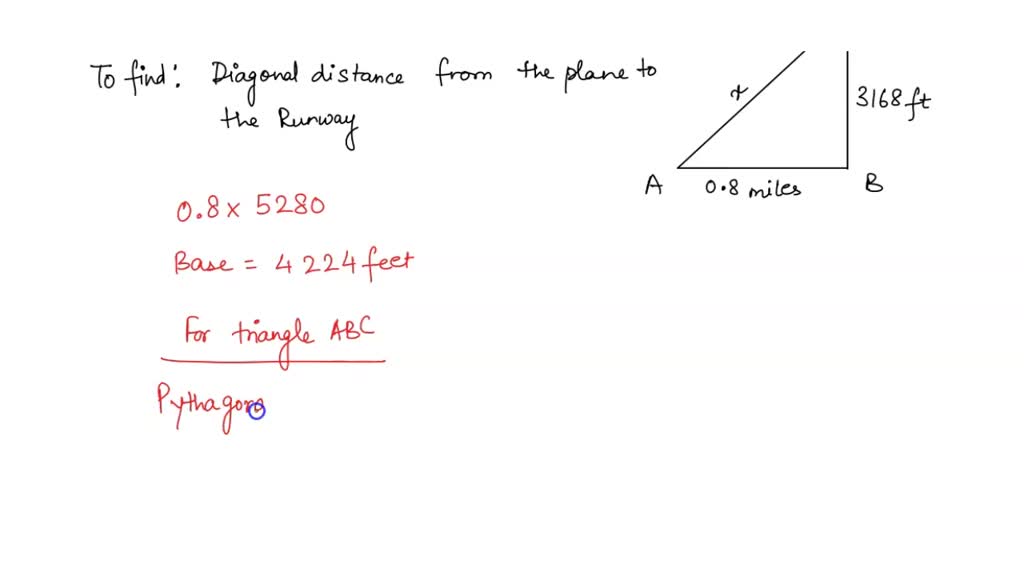 To find: Diagonal distance from the plane to
the Runway
x
3168 ft
A 0.8 miles B
0.8 x 5280
Base = 4224 feet
For triangle ABC
Pythagora